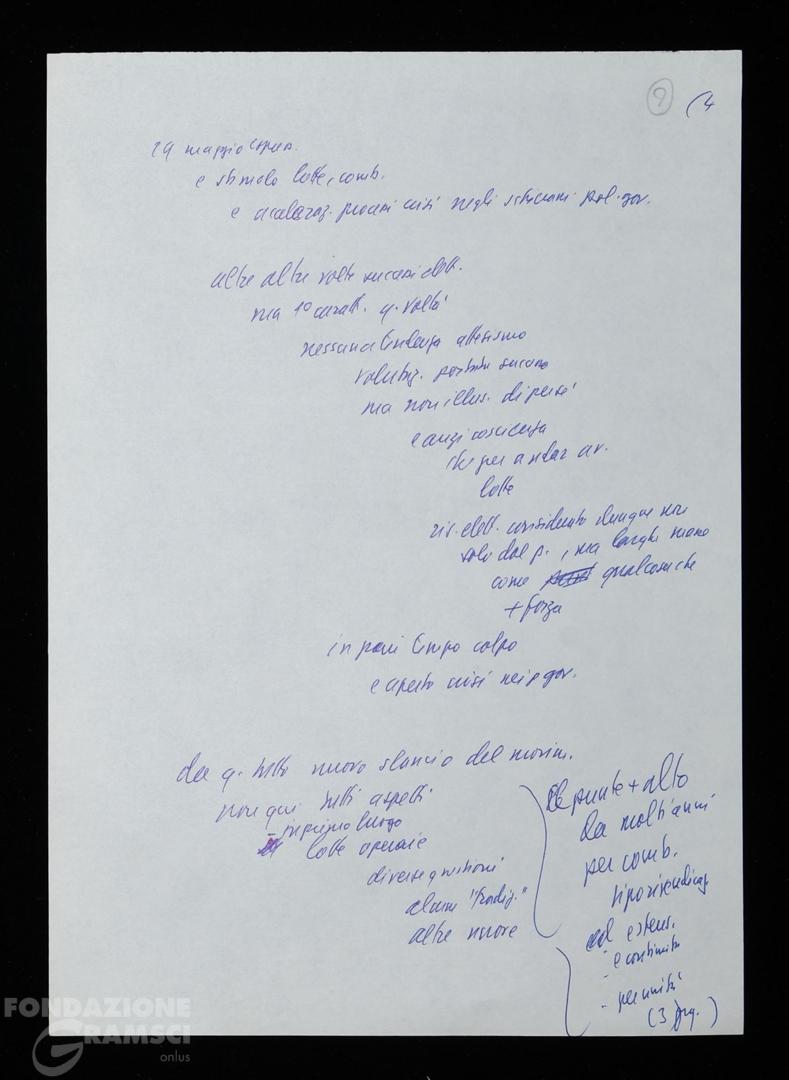 9 (4
19 maggio espress.
e stimolo lotte, comb.
e acceleraz. processi crisi negli schieram. pol. gov.
altre altre volte successi elett.
ma 1º caratt. q. volta
nessuna tendenza attesismo
valutaz. portata successo
ma non illus. di per sé
e anzi coscienza
che per andar av.
lotte
ris. elett. considerato dunque non
solo dal p., ma larghe masse
come qualcosa che
+ forza
in pari tempo colpo
e aperto crisi nei p. gov.
da q. tutto nuovo slancio del movim.
non qui tutti aspetti
- in primo luogo
lotte operaie
diverse questioni
alcune "tradiz."
altre nuove
le punte + alto
da molti anni
per comb.
tipo rivendicaz.
ed estens.
- e continuità
- per unità
(3 org.)
FONDAZIONE
GRAMSCI
onlus